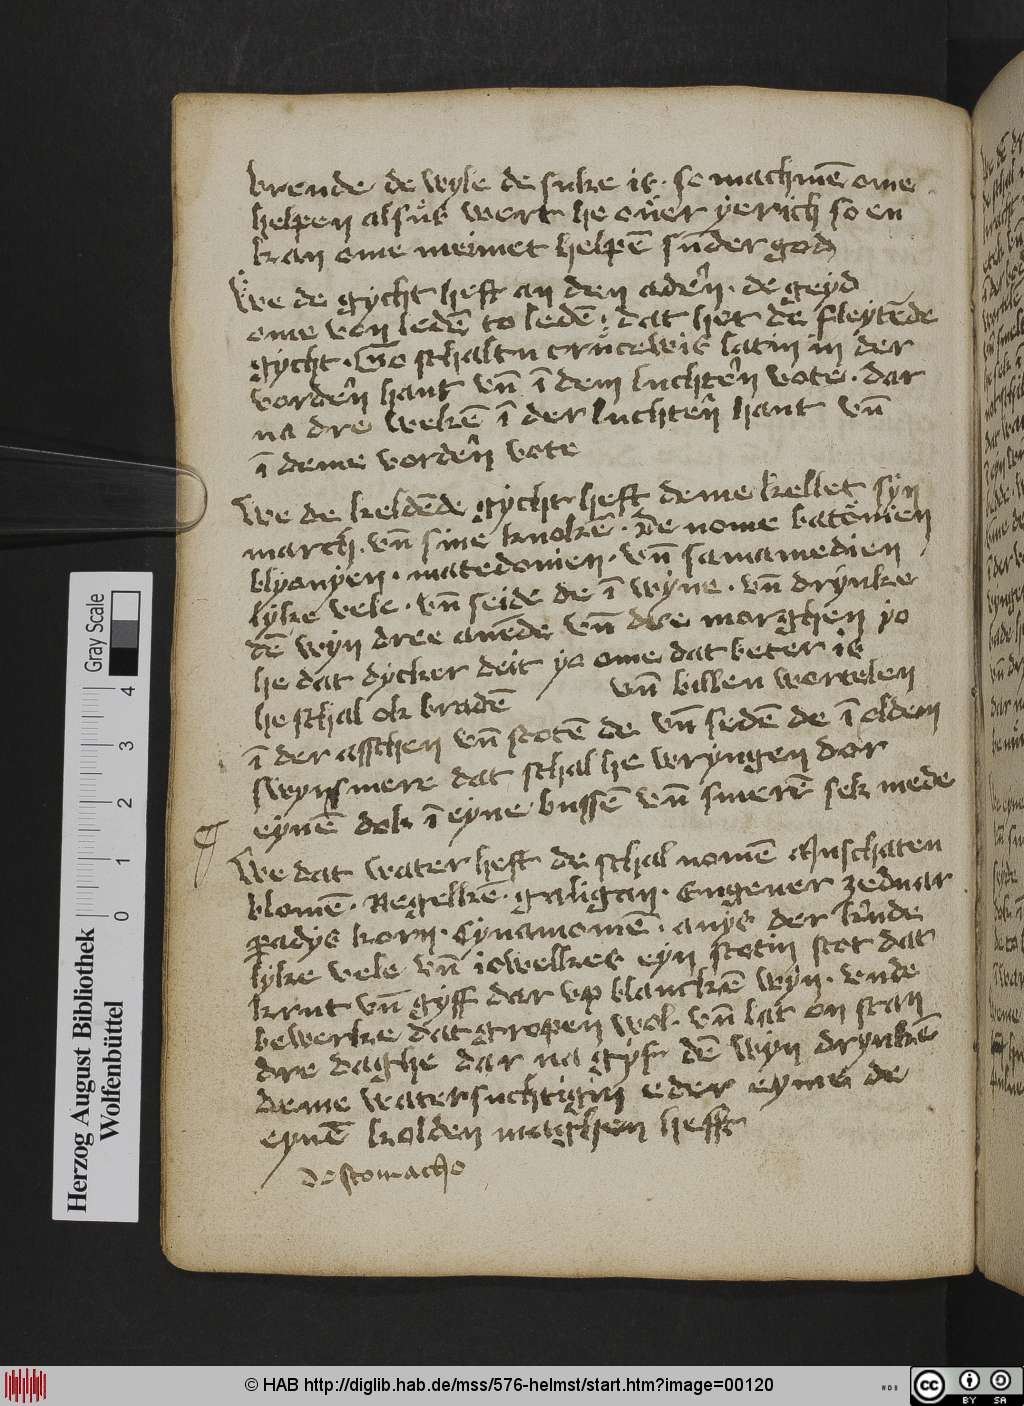 brende de wyle de suke is · so machmē ome
helpen alsus wert he ouer yerich so en
kan ome neimet helpē sūder god
We de gycht heft an den adern · de geyd
ome von ledē to ledē · dat het de fleytēde
gycht · So schaltu crucewis latin in der
vordern hant vn̄ ī dem luchtern vote · dar
na dre wekē ī der luchtern hant vn̄
ī deme vordern vote
We de keldēde gycht heft deme kellet syn
march · vn̄ sine knokē · De nome batonien
blyonyen · matedonien · vn̄ samamedien
lyke vele · vn̄ seide de ī wyne · vn̄ drynke
dē wyn dree auēde vn̄ dre morghen yo
he dat dycker deit yo ome dat beter is
he schal ok bradē vn̄ billen wortelen
ī der asschen vn̄ stotē de vn̄ sedē de ī oldem
swynsmere dat schal he wryngen dor
eynē dok ī eyne bussē vn̄ smerē sek mede
We dat water heft de schal nomē Muschaten
blomē · Negelkē · galigan · Engeuer zeduar
ꝑadys korn · Cynamomē · anys der krude
lyke vele vn̄ iowelkes eyn stotin stot dat
krut vn̄ gyff dar vp blanckē wyn · vnde
bewerke dat gropen wol · vn̄ lat on stan
dre daghe dar na gyf dē wyn drynkē
deme watersuchtigin eder eyme de
eynē kolden maghen hefft
De stomacho
Herzog August Bibliothek
Wolfenbüttel
Gray Scale
0 1 2 3 4
© HAB http://diglib.hab.de/mss/576-helmst/start.htm?image=00120
WDB
cc BY SA